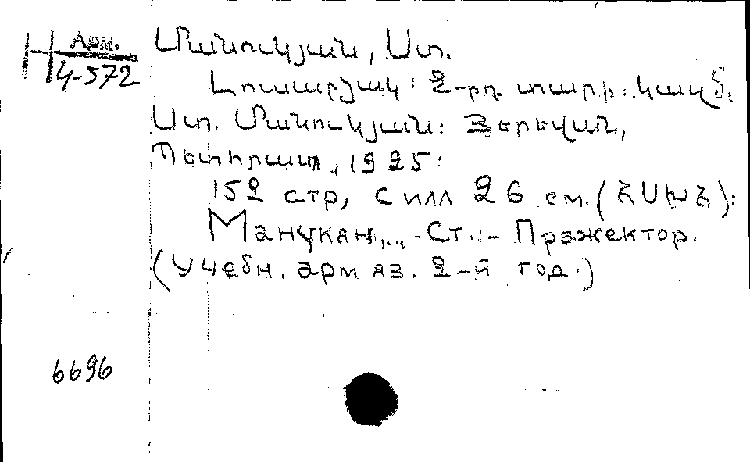 Арм.
Н 4-572
Մանուկյան, Ստ.
Լուսարձակ: 2-րդ տարի: կազմ.
Ստ. Մանուկյան: Յերեվան,
Պետհրատ, 1925:
152 стр, с илл 26 см. (ՀՍԽՀ):
Манукян, Ст. - Пражектор.
(Учебн. арм яз. 2-й год.)
6696